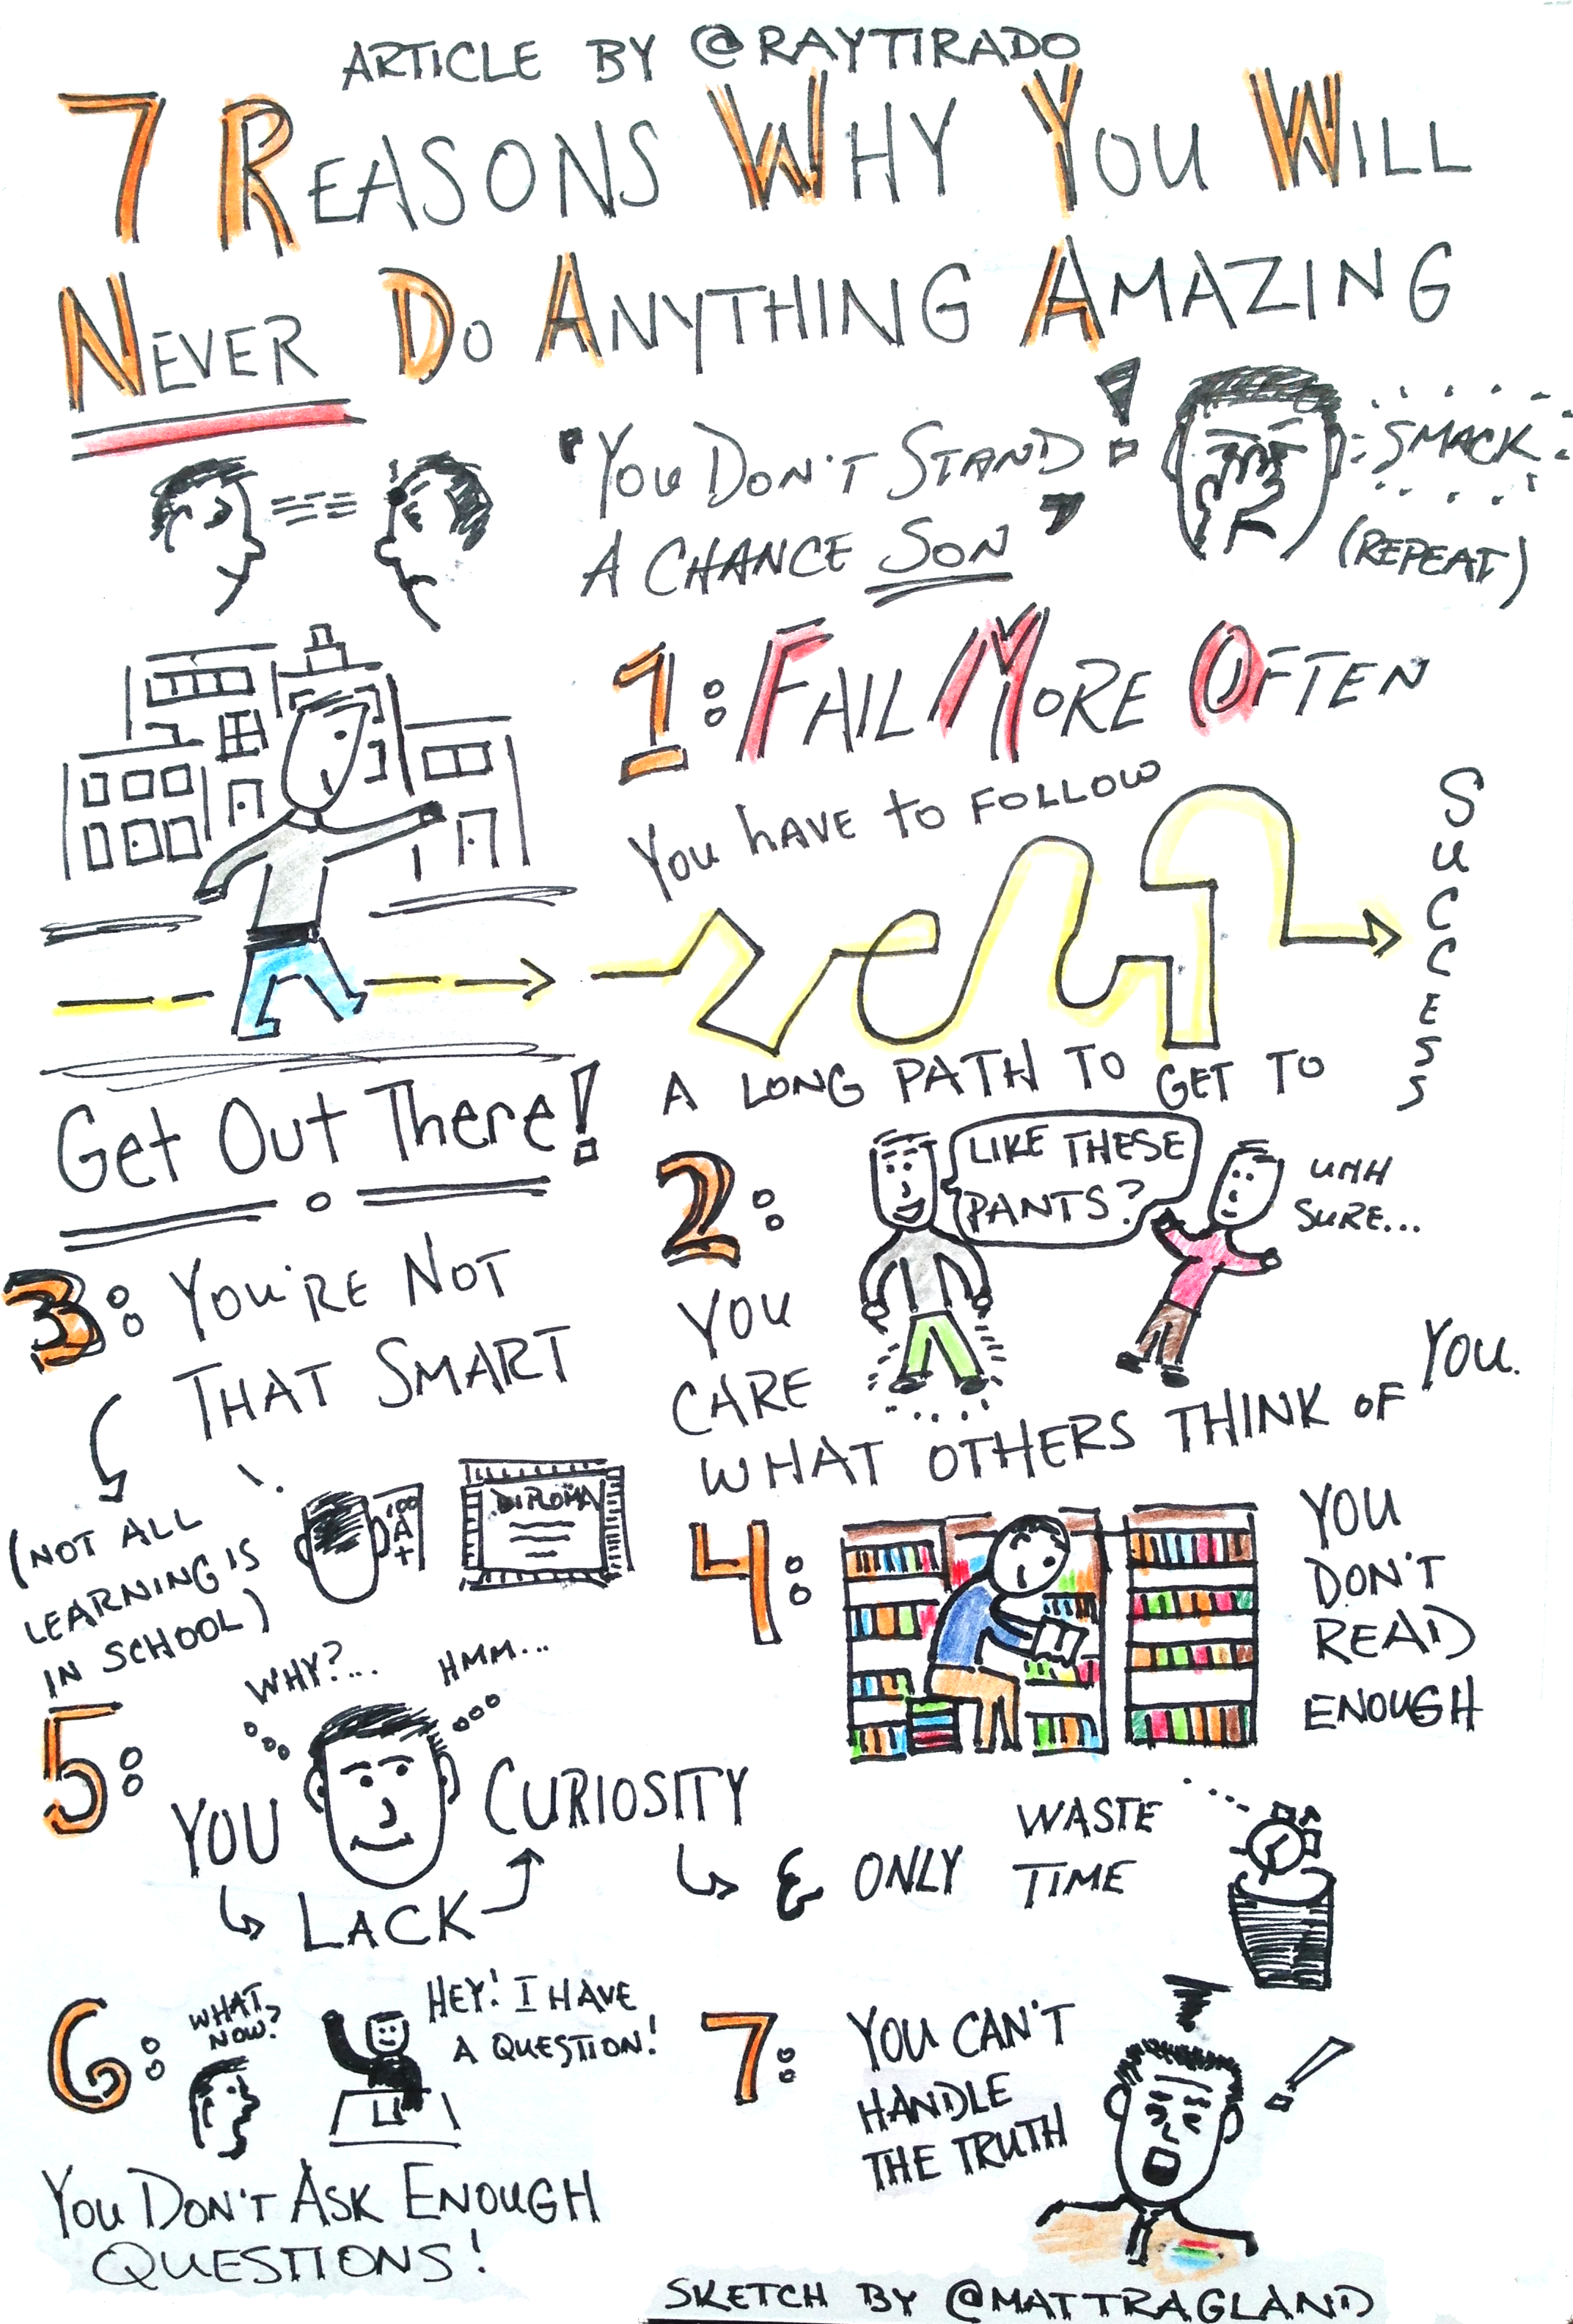 ARTICLE BY @RAYTIRADO
7 REASONS WHY YOU WILL
NEVER DO ANYTHING AMAZING
"YOU DON'T STAND
A CHANCE SON"
!
SMACK
(REPEAT)
1: FAIL MORE OFTEN
YOU HAVE TO FOLLOW
A LONG PATH TO GET TO
SUCCESS
Get Out There!
2:
LIKE THESE
PANTS?
UHH
SURE...
YOU
CARE
WHAT OTHERS THINK OF YOU.
3: YOU'RE NOT
THAT SMART
(NOT ALL
LEARNING IS
IN SCHOOL)
100
A+
DIPLOMA
4:
YOU
DON'T
READ
ENOUGH
5:
WHY?...
HMM...
YOU
LACK
CURIOSITY
& ONLY WASTE
TIME
6:
WHAT
NOW?
HEY! I HAVE
A QUESTION!
YOU DON'T ASK ENOUGH
QUESTIONS!
7: YOU CAN'T
HANDLE
THE TRUTH
!
SKETCH BY @MATTRAGLAND